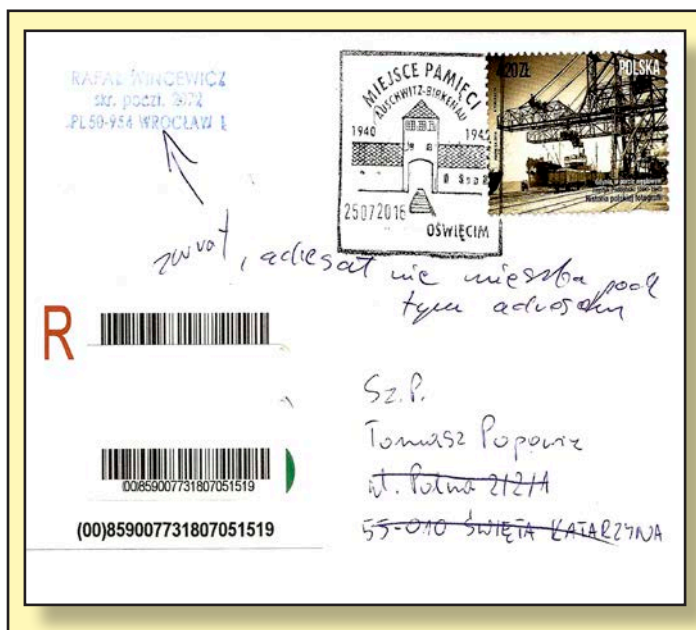 RAFAŁ WINCEWICZ
skr. poczt. 2072
PL 50-954 WROCŁAW 1
MIEJSCE PAMIĘCI
AUSCHWITZ-BIRKENAU
1940 1945
25072016
OŚWIĘCIM
4,20 ZŁ POLSKA
Historia polskiej fotografii
zwrot, adresat nie mieszka pod
tym adresem
R
Sz.P.
Tomasz Popowicz
ul. Polna 2/2/A
55-010 ŚWIĘTA KATARZYNA
(00)859007731807051519
(00)859007731807051519